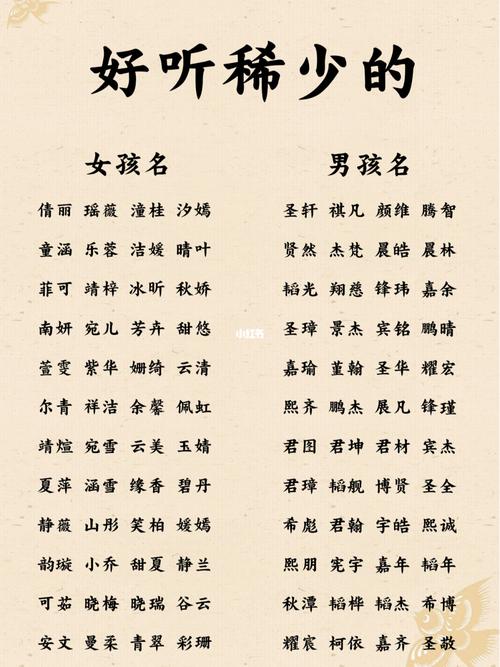 好听稀少的
女孩名
倩丽 瑶薇 潼桂 汐嫣
童涵 乐蓉 洁媛 晴叶
菲可 靖梓 冰昕 秋娇
南妍 宛儿 芳卉 甜悠
萱雯 紫华 姗绮 云清
尔青 祥洁 余馨 佩虹
靖煊 宛雪 云美 玉婧
夏萍 涵雪 缘香 碧丹
静薇 山彤 笑柏 媛嫣
韵璇 小乔 甜夏 静兰
可茹 晓梅 晓瑞 谷云
安文 曼柔 青翠 彩珊
男孩名
圣轩 祺凡 颜维 腾智
贤然 杰梵 晨皓 晨林
韬光 翔慈 锋玮 嘉余
圣璋 景杰 宾铭 鹏晴
嘉瑜 堇翰 圣华 耀宏
熙齐 鹏杰 展凡 锋瑾
君图 君坤 君材 宾杰
君璋 韬舰 博贤 圣全
希彪 君翰 宇皓 熙诚
熙朋 宪宇 嘉年 韬年
秋潭 韬桦 韬杰 希博
耀宸 柯依 嘉齐 圣敬
小红书